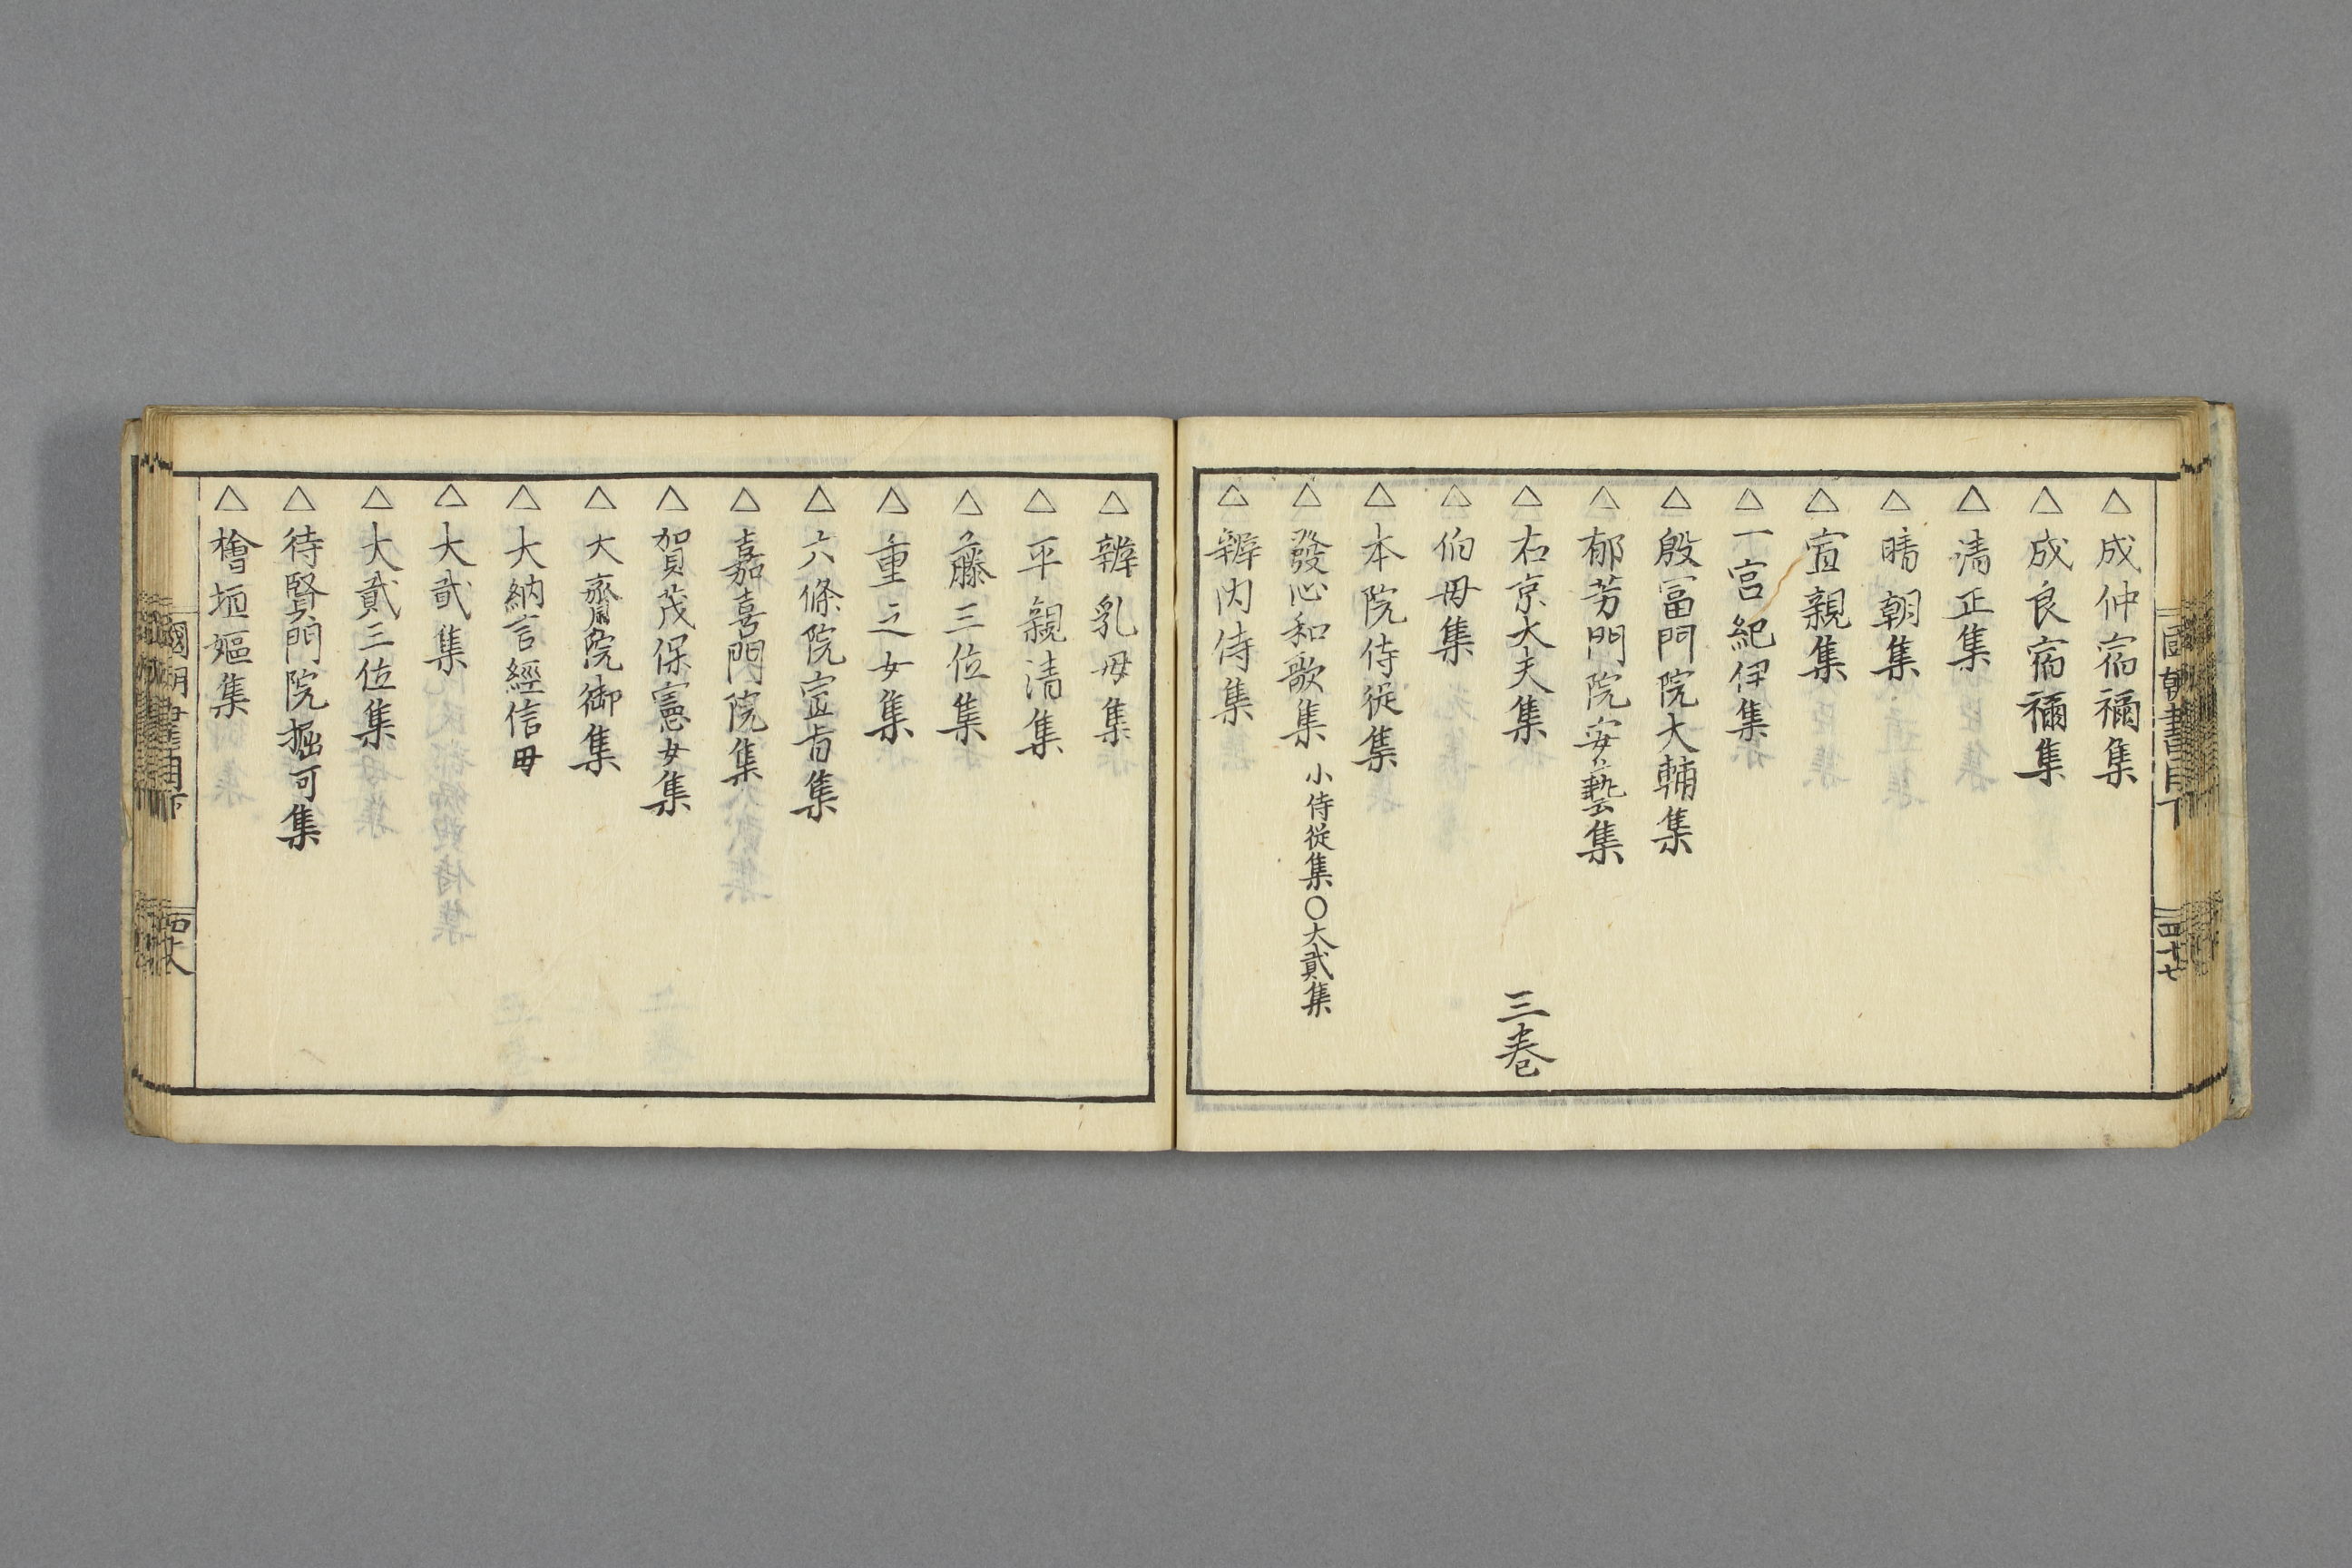 國朝書目下
四十七
△成仲宿禰集
△成良宿禰集
△清正集
△晴朝集
△宣親集
△一宮紀伊集
△殷富門院大輔集
△郁芳門院安藝集
△右京大夫集 三巻
△伯母集
△本院侍従集
△發心和歌集 小侍従集〇大貳集
△辨内侍集
△辨乳母集
△平親清集
△藤三位集
△重之女集
△六條院宣旨集
△嘉喜門院集
△賀茂保憲女集
△大齋院御集
△大納言經信母
△大貳集
△大貳三位集
△待賢門院堀可集
△檜垣嫗集
國朝書目下
四十八